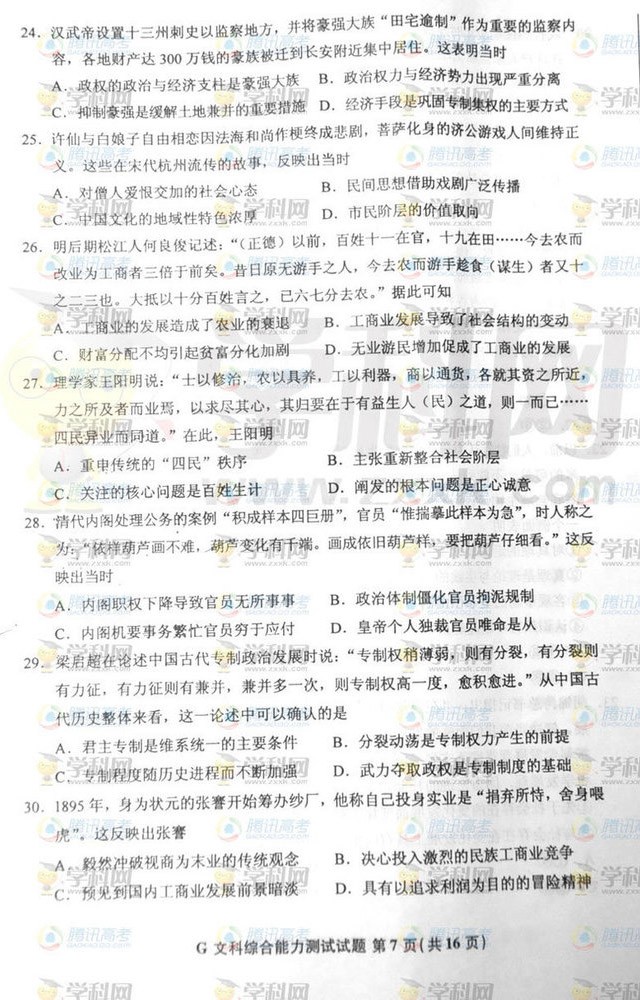 24. 汉武帝设置十三州刺史以监察地方，并将豪强大族“田宅逾制”作为重要的监察内
容，各地财产达 300 万钱的豪族被迁到长安附近集中居住。这表明当时
A．政权的政治与经济支柱是豪强大族 B．政治权力与经济势力出现严重分离
C．抑制豪强是缓解土地兼并的重要措施 D．经济手段是巩固专制集权的主要方式
25. 许仙与白娘子自由相恋因法海和尚作梗终成悲剧，菩萨化身的济公游戏人间维持正
义。这些在宋代杭州流传的故事，反映出当时
A．对僧人爱恨交加的社会心态 B．民间思想借助戏剧广泛传播
C．中国文化的地域性特色浓厚 D．市民阶层的价值取向
26. 明后期松江人何良俊记述：“（正德）以前，百姓十一在官，十九在田……今去农而
改业为工商者三倍于前矣。昔日原无游手之人，今去农而游手趁食（谋生）者又十
之二三也。大抵以十分百姓言之，已六七分去农。”据此可知
A．工商业的发展造成了农业的衰退 B．工商业发展导致了社会结构的变动
C．财富分配不均引起贫富分化加剧 D．无业游民增加促成了工商业的发展
27. 理学家王阳明说：“士以修治，农以具养，工以利器，商以通货，各就其资之所近，
力之所及者而业焉，以求尽其心，其归要在于有益生人（民）之道，则一而已……
四民异业而同道。”在此，王阳明
A．重申传统的“四民”秩序 B．主张重新整合社会阶层
C．关注的核心问题是百姓生计 D．阐发的根本问题是正心诚意
28. 清代内阁处理公务的案例“积成样本四巨册”，官员“惟揣摹此样本为急”，时人称之
为：“依样葫芦画不难，葫芦变化有千端。画成依旧葫芦样，要把葫芦仔细看。”这反
映出当时
A．内阁职权下降导致官员无所事事 B．政治体制僵化官员拘泥规制
C．内阁机要事务繁忙官员穷于应付 D．皇帝个人独裁官员唯命是从
29. 梁启超在论述中国古代专制政治发展时说：“专制权稍薄弱，则有分裂，有分裂则
有力征，有力征则有兼并，兼并多一次，则专制权高一度，愈积愈进。”从中国古
代历史整体来看，这一论述中可以确认的是
A．君主专制是维系统一的主要条件 B．分裂动荡是专制权力产生的前提
C．专制程度随历史进程而不断加强 D．武力夺取政权是专制制度的基础
30. 1895 年，身为状元的张謇开始筹办纱厂，他称自己投身实业是“捐弃所恃，舍身喂
虎”。这反映出张謇
A．毅然冲破视商为末业的传统观念 B．决心投入激烈的民族工商业竞争
C．预见到国内工商业发展前景暗淡 D．具有以追求利润为目的的冒险精神
G 文科综合能力测试试题 第 7 页（共 16 页）
学科网
www.zxxk.com
腾讯高考